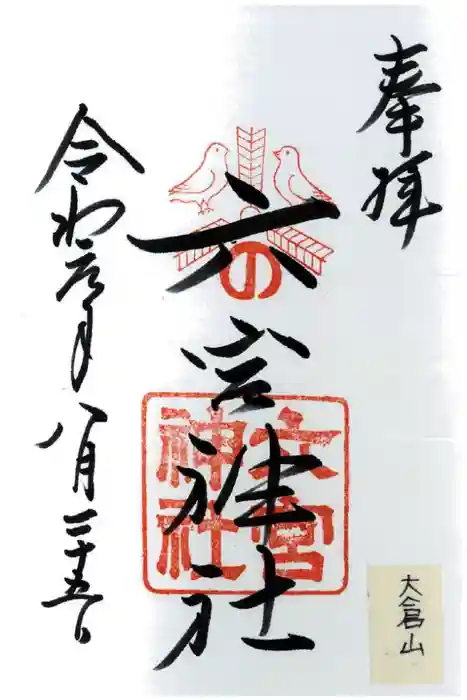 奉拝
六宮神社
の
六宮
神社
令和元年八月二十五日
大倉山